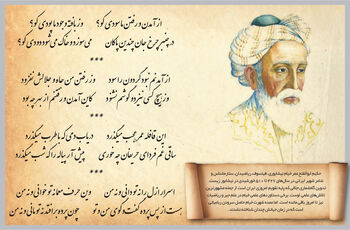 از آمدن و رفتن ما سودی کو؟ وز بافته وجود ما پودی کو؟
در چنبر چرخ جان چندین پاکان می‌سوزد و خاک می‌شود دودی کو؟
***
از آمدنم نبود گردون را سود وز رفتن من جاه و جلالش نفزود
وز هیچ کسی نیز دو گوشم نشنود کاین آمدن و رفتنم از بهر چه بود
***
این قافله عمر عجب میگذرد دریاب دمی که با طرب میگذرد
ساقی غم فردای حریفان چه خوری پیش آر پیاله را که شب میگذرد
***
اسرار ازل را نه تو دانی و نه من وین حرف معما نه تو خوانی و نه من
هست از پس پرده گفت و گوی من و تو چون پرده برافتد نه تو مانی و نه من
حکیم ابوالفتح عمر خیام نیشابوری، فیلسوف، ریاضیدان، ستاره‌شناس و